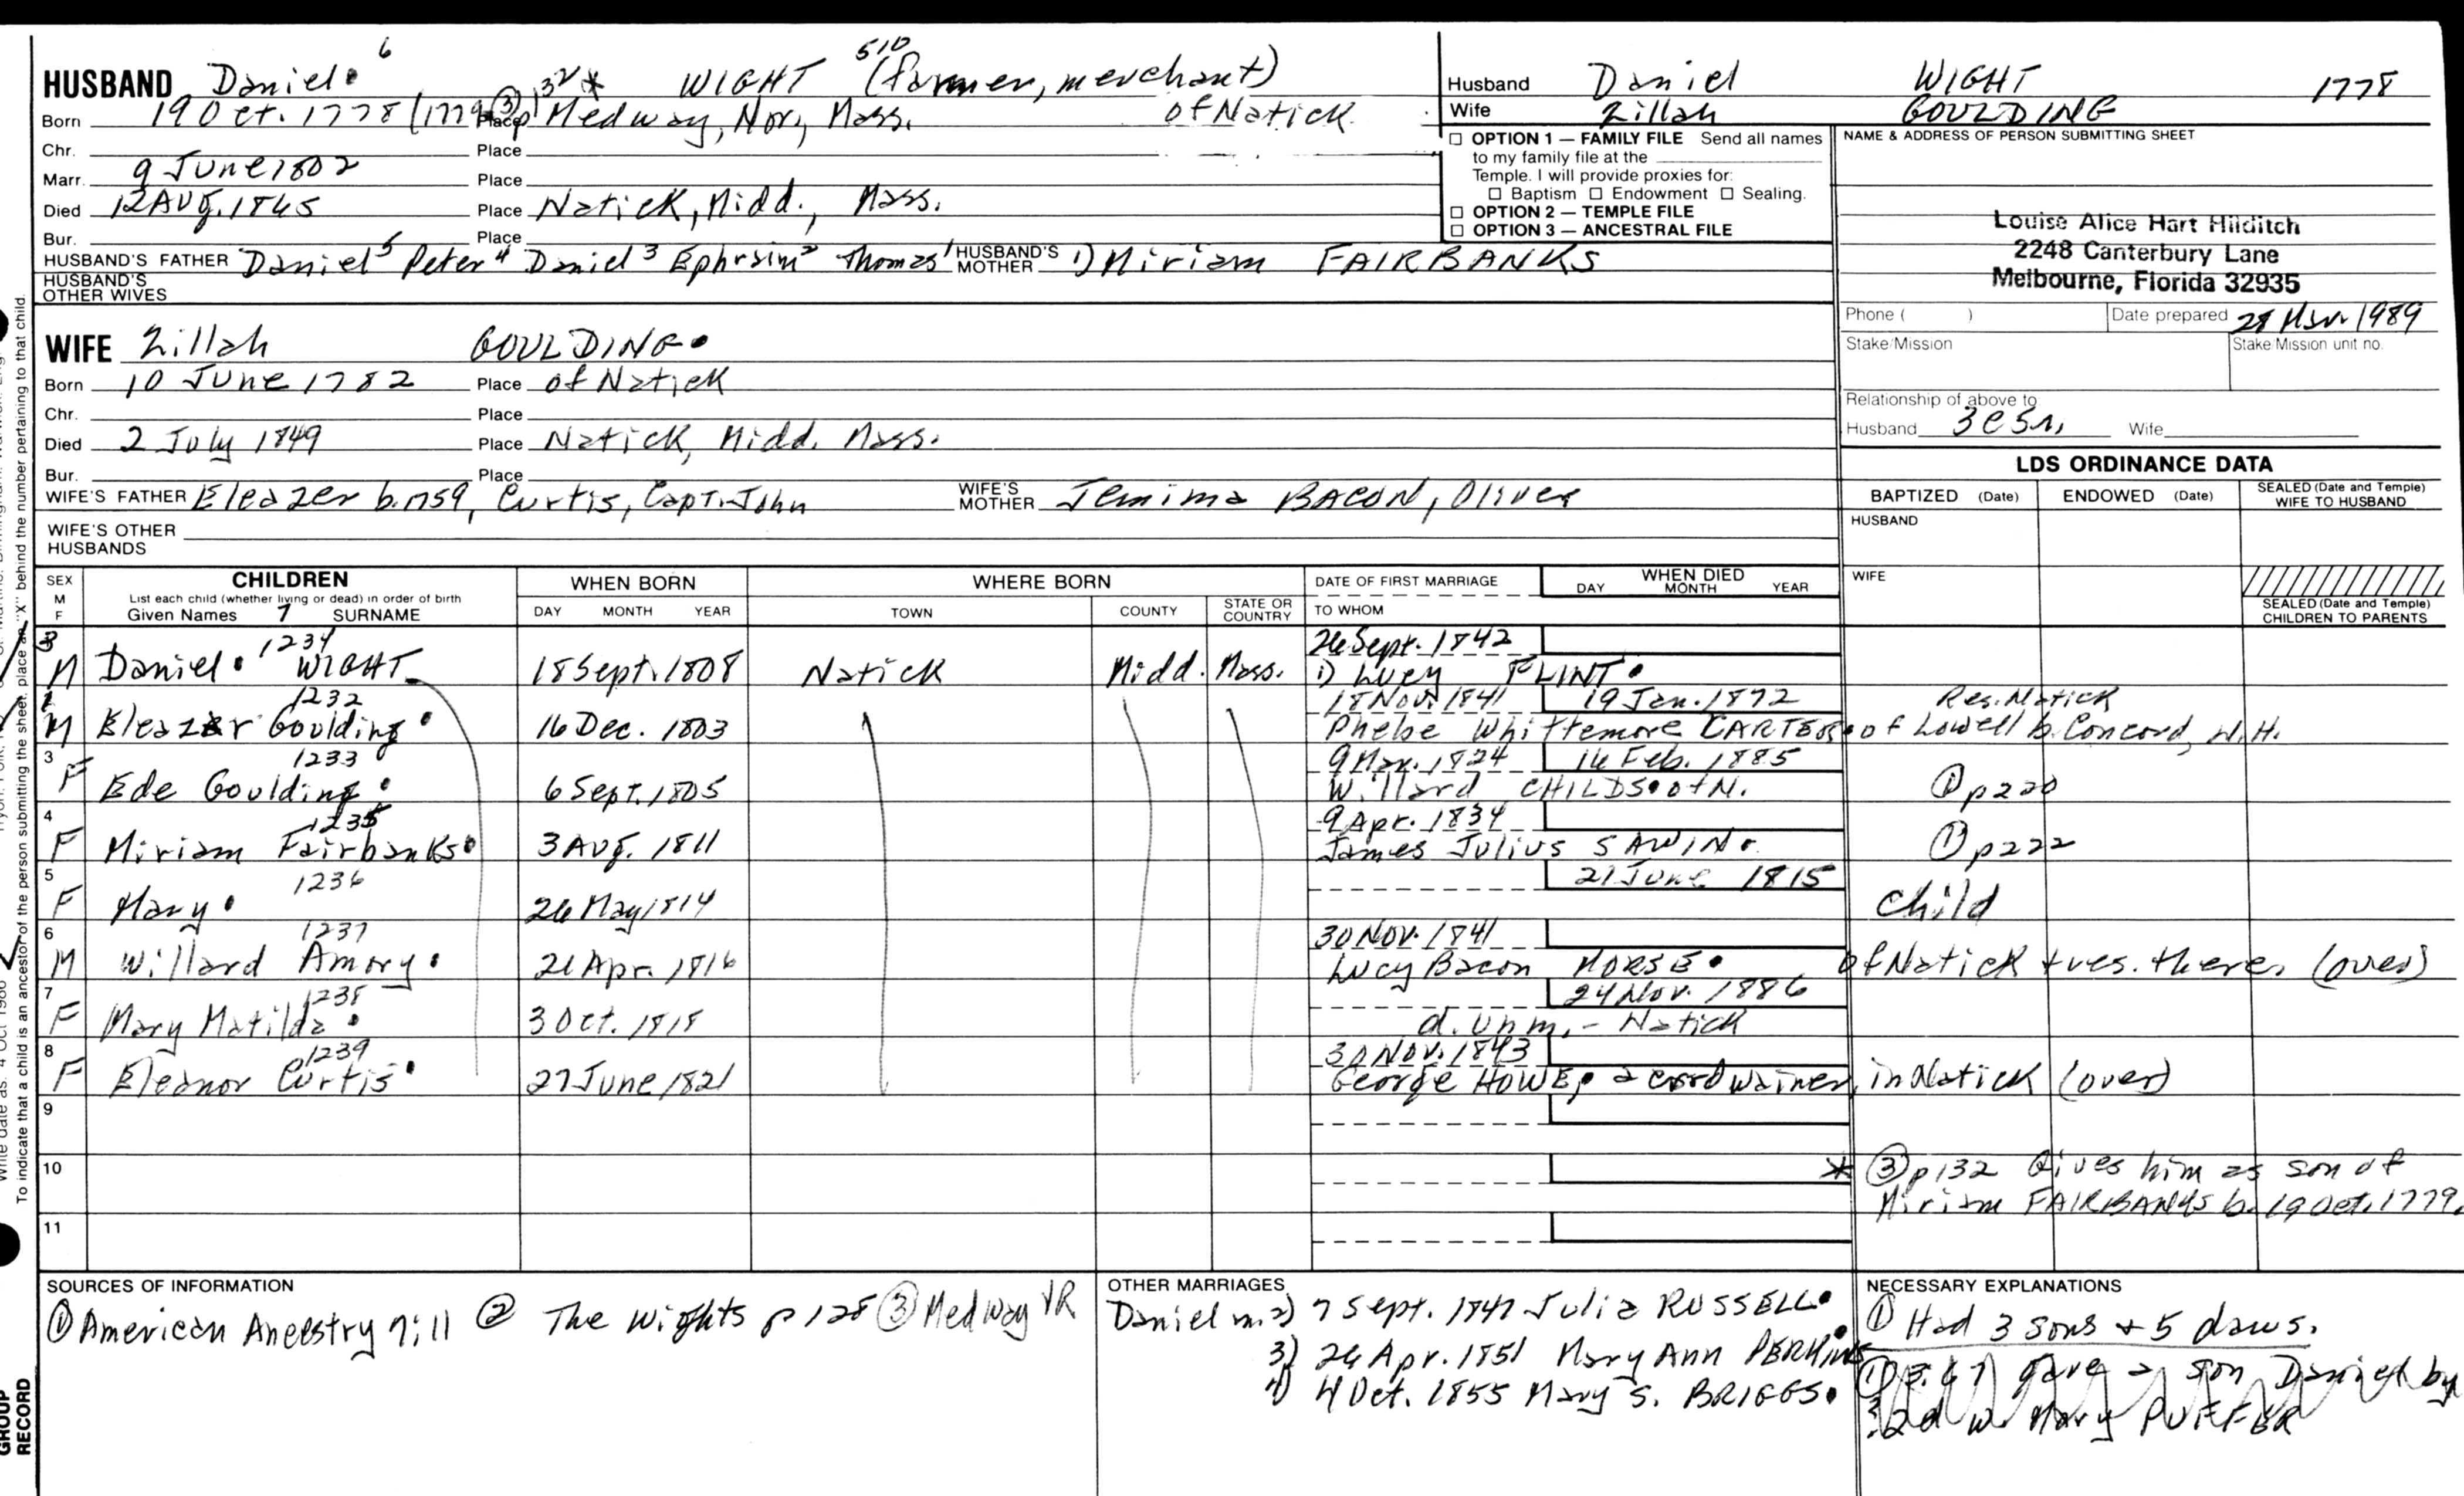 6 510
HUSBAND Daniel WIGHT (farmer, merchant)
Born 19 Oct. 1778 (1779 ③ p 132 * Place Medway, Nor, Mass. of Natick
Chr. Place
Marr. 9 June 1802 Place
Died 12 Aug. 1845 Place Natick, Midd., Mass.
Bur. Place
HUSBAND'S FATHER Daniel5 Peter4 Daniel3 Ephraim2 Thomas1 HUSBAND'S MOTHER 1) Miriam FAIRBANKS
HUSBAND'S OTHER WIVES
Husband Daniel WIGHT 1778
Wife Zillah GOULDING
☐ OPTION 1 — FAMILY FILE Send all names
to my family file at the
Temple. I will provide proxies for:
☐ Baptism ☐ Endowment ☐ Sealing.
☐ OPTION 2 — TEMPLE FILE
☐ OPTION 3 — ANCESTRAL FILE
NAME & ADDRESS OF PERSON SUBMITTING SHEET
Louise Alice Hart Hilditch
2248 Canterbury Lane
Melbourne, Florida 32935
Phone ( ) Date prepared 28 Mar. 1989
Stake/Mission Stake/Mission unit no.
Relationship of above to
Husband Wife
WIFE Zillah GOULDING
Born 10 June 1782 Place of Natick
Chr. Place
Died 2 July 1849 Place Natick, Midd. Mass.
Bur. Place
WIFE'S FATHER Eleazer b. 1759, Curtis, Capt. John WIFE'S MOTHER Jemima BACON, Oliver
WIFE'S OTHER HUSBANDS
LDS ORDINANCE DATA
BAPTIZED (Date) ENDOWED (Date) SEALED (Date and Temple) WIFE TO HUSBAND
HUSBAND
WIFE
SEALED (Date and Temple) CHILDREN TO PARENTS
SEX M F CHILDREN WHEN BORN WHERE BORN DATE OF FIRST MARRIAGE WHEN DIED
List each child (whether living or dead) in order of birth DAY MONTH YEAR
Given Names 7 SURNAME DAY MONTH YEAR TOWN COUNTY STATE OR COUNTRY TO WHOM
3 1234 26 Sept. 1842
M Daniel WIGHT 18 Sept. 1808 Natick Midd. Mass. 1) Lucy FLINT
1232 18 Nov. 1841 19 Jan. 1872 Res. Natick
M Eleazer Goulding 16 Dec. 1803 Phebe Whittemore CARTER of Lowell b. Concord, N.H.
3 1233 9 Mar. 1824 16 Feb. 1885
F Ede Goulding 6 Sept. 1805 Willard CHILDS of N. ① p 220
4 1235 9 Apr. 1834
F Miriam Fairbanks 3 Aug. 1811 James Julius SAWIN ① p 222
5 1236 21 June 1815
F Mary 26 May 1814 child
6 1237 30 Nov. 1841
M Willard Amory 21 Apr. 1816 Lucy Bacon MORSE of Natick + res. there. (over)
7 1238 24 Nov. 1886
F Mary Matilda 3 Oct. 1818 d. unm. - Natick
8 1239 30 Nov. 1843
F Eleanor Curtis 27 June 1821 George HOWE, a cordwainer, in Natick (over)
9
10 * ③ p 132 Gives him as son of
Miriam FAIRBANKS b. 19 Oct. 1779.
11
SOURCES OF INFORMATION
① American Ancestry 7:11 ② The Wights p 128 ③ Medway VR
OTHER MARRIAGES
Daniel m. 2) 7 Sept. 1847 Julia RUSSELL
3) 26 Apr. 1851 Mary Ann PERKINS
4) 4 Oct. 1855 Mary S. BRIGGS
NECESSARY EXPLANATIONS
① Had 3 sons + 5 daus.
gave a son Daniel by
2d w. Mary PUFFER
To indicate that a child is an ancestor of the person submitting the sheet, place an "X" behind the number pertaining to that child.
GROUP RECORD